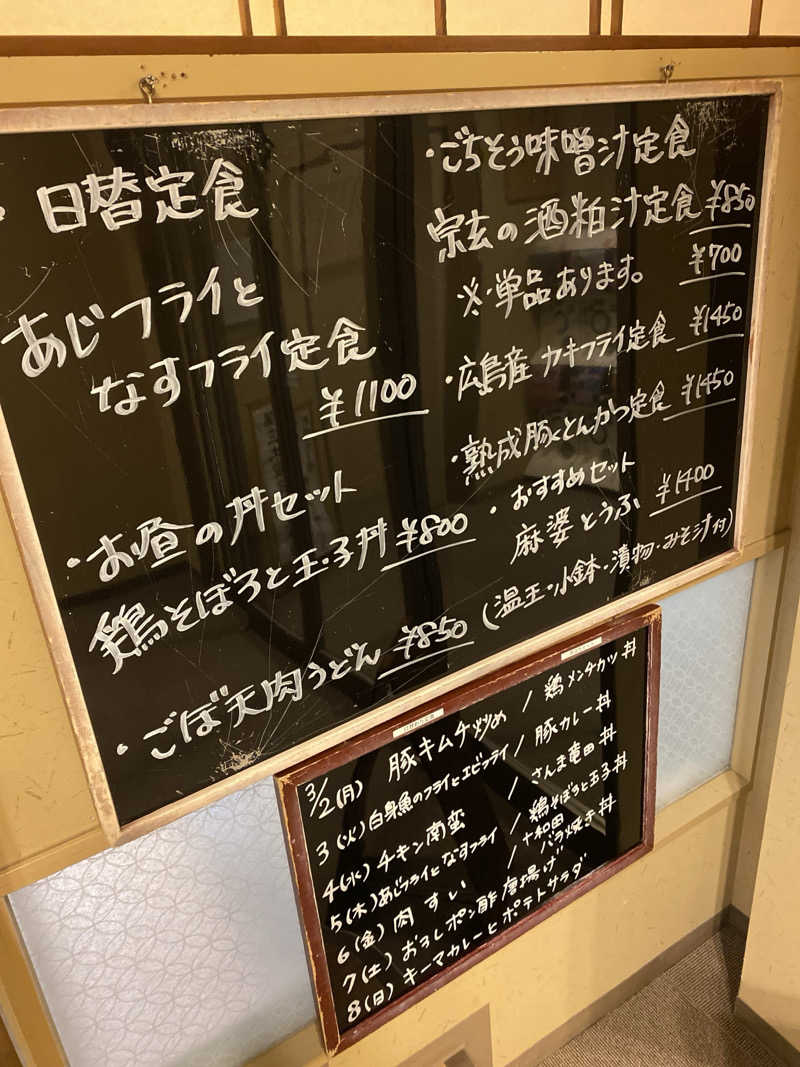 ・日替定食
あじフライと
なすフライ定食
¥1100
・お昼の丼セット
鶏そぼろと玉子丼 ¥800
・ごぼ天肉うどん ¥850
・ごちそう味噌汁定食
宗玄の酒粕汁定食 ¥850
※単品あります。 ¥700
・広島産カキフライ定食 ¥1450
・熟成豚とんかつ定食 ¥1450
・おすすめセット
麻婆とうふ ¥1400
(温玉・小鉢・漬物・みそ汁付)
3/2(月) 豚キムチ炒め / 鶏メンチカツ丼
3(火)白身魚のフライとエビフライ / 豚カレー丼
4(水)チキン南蛮 / さんま竜田丼
5(木)あじフライとなすフライ / 鶏そぼろと玉子丼
6(金)肉すい / 十和田バラ焼き丼
7(土)おろしポン酢唐揚げ
8(日)キーマカレーとポテトサラダ